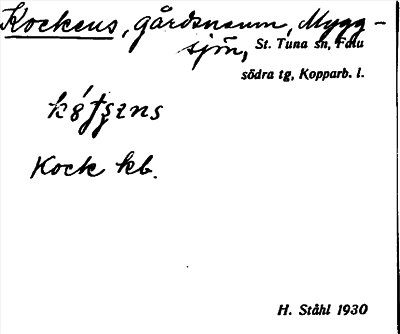 Kockens, gårdsnamn, Mygg-
sjön, St. Tuna sn, Falu
södra tg, Kopparb. l.
Kock kb.
H. Ståhl 1930